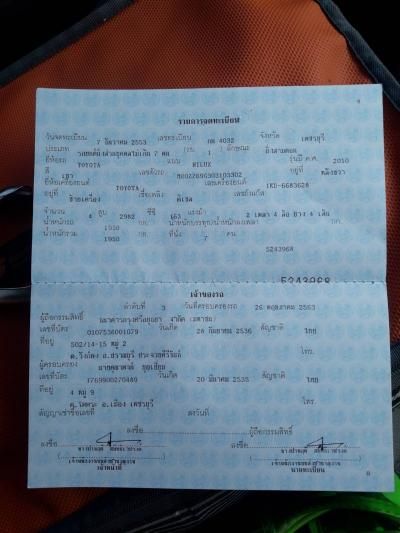 รายการจดทะเบียน
วันจดทะเบียน 7 ธันวาคม 2553 เลขทะเบียน กต 4032 จังหวัด เพชรบุรี
ประเภท รถยนต์นั่งส่วนบุคคลไม่เกิน 7 คน (รย. 1 ) ลักษณะ
ยี่ห้อรถ TOYOTA แบบ HILUX รุ่นปี ค.ศ. 2010
สี เทา เลขตัวรถ อยู่ที่
ยี่ห้อเครื่องยนต์ TOYOTA เลขเครื่องยนต์ 1KD-6683628
อยู่ที่ เชื้อเพลิง ดีเซล
จำนวน 4 สูบ 2982 ซีซี 163 แรงม้า 2 เพลา 4 ล้อ ยาง 4 เส้น
น้ำหนักรถ 1950 กก. น้ำหนักบรรทุก/น้ำหนักลงเพลา กก.
น้ำหนักรวม 1950 กก. ที่นั่ง 7 คน
5243968
5243968
เจ้าของรถ
ลำดับที่ 3 วันที่ครอบครองรถ 26 พฤษภาคม 2563
ผู้ถือกรรมสิทธิ์ ธนาคารกรุงศรีอยุธยา จำกัด (มหาชน)
เลขที่บัตร 0107536001079 วันเกิด 28 กันยายน 2536 สัญชาติ ไทย
ที่อยู่ 502/14-15 หมู่ 2
โทร.
ผู้ครอบครอง
เลขที่บัตร 1769900270489 วันเกิด 20 มีนาคม 2535 สัญชาติ ไทย
ที่อยู่ 4 หมู่ 9
อ.เมือง เพชรบุรี โทร.
สัญญาเช่าซื้อเลขที่ ลงวันที่
ลงชื่อ ผู้ถือกรรมสิทธิ์
ลงชื่อ ลงชื่อ
เจ้าหน้าที่ นายทะเบียน